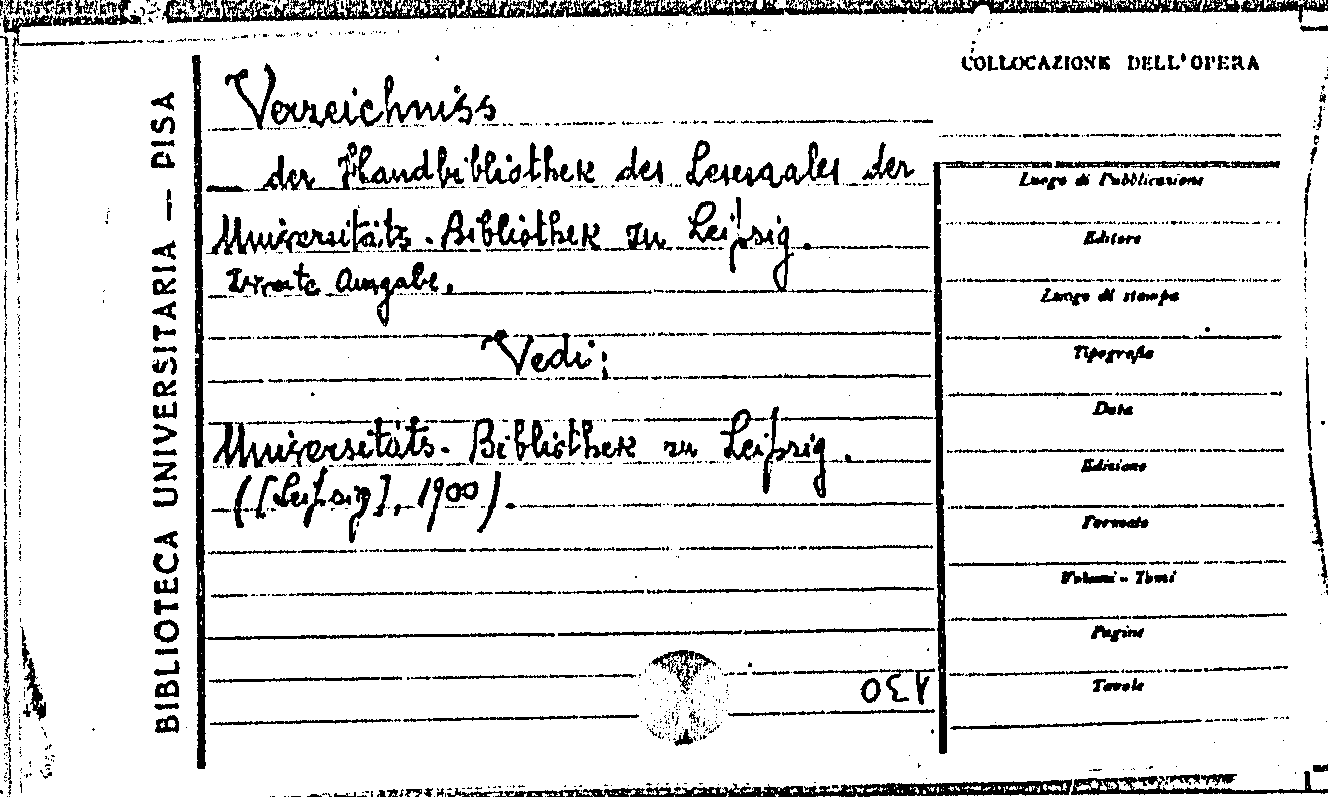 BIBLIOTECA UNIVERSITARIA — PISA
Verzeichniss
— der Handbibliothek des Lesesaales der
Universitäts-Bibliothek zu Leipzig.
Zweite Ausgabe.
Vedi:
Universitäts-Bibliothek zu Leipzig.
([Leipzig], 1900).
COLLOCAZIONE DELL'OPERA
Luogo di Pubblicazione
Editore
Luogo di stampa
Tipografia
Data
Edizione
Formato
Volumi - Tomi
Pagine
Tavole